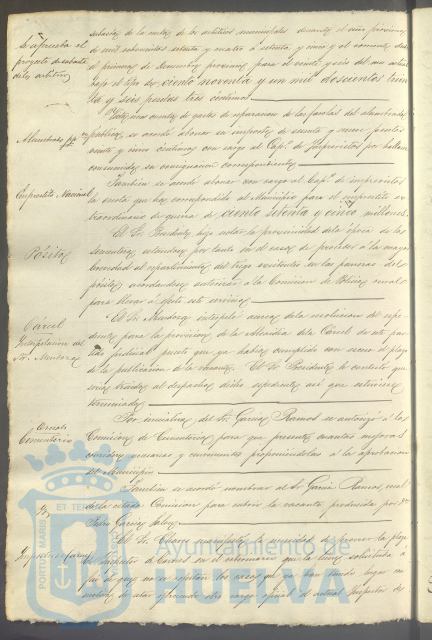 Se aprueba el
proyecto de subasta
de los arbitrios
subasta de la renta de los arbitrios municipales durante el año próximo
de mil ochocientos setenta y cuatro á setenta y cinco y al
primero de Diciembre próximo para el veinte y seis del mes actual
bajo el tipo de ciento noventa y un mil doscientas trein
ta y seis pesetas tres céntimos
Alumbrado
de gastos de reparacion de los faroles del alumbrado
público, se acordó abonar su importe de ciento y nueve pesetas
veinte y cinco céntimos con cargo al Capº de Imprevistos por hallarse
consumida su consignacion correspondiente
Empréstito Nacional
Tambien se acordó abonar con cargo al Capº de imprevistos
la cuota que ha correspondido al Municipio para el empréstito es
traordinario de guerra de ciento setenta y cinco millones.
Pósitos
El Sr. Presidente hizo notar la proximidad de la época de las
sementeras, estandose por tanto en el caso de proceder á la mayor
brevedad al repartimiento del trigo existente en las paneras del
pósito, acordandose autorizar á la Comision de Policia rural
para llevar á efecto este servicio
Cárcel
Interpelacion del
Sr. Mendoza
El Sr. Mendoza interpeló acerca de la resolucion del espe
diente para la provision de la Alcaidia de la Cárcel de este par
tido judicial puesto que ya habia cumplido con esceso el plazo
de la publicacion de la vacante. El Sr. Presidente le contestó que
serian traidos al despacho dicho espediente así que estuviese
terminado
Cementerio
Por iniciativa del Sr. Garcia Ramos se autorizó á la
Comision de Cementerios para que presente cuantas mejoras
considere necesarias y convenientes proponiendolas á la aprobacion
del Municipio
Tambien se acordó nombrar al Sr. Garcia Ramos vocal
de la citada Comision para cubrir la vacante producida por Dn
Pedro Garcia
El Sr. manifestó la necesidad de proveer la plaza
de Inspector de Carnes
que no se repitan los casos que ya han tenido lugar
cargo oficial el actual Inspector de
PORTUS MARIS ET TERRAE
Ayuntamiento de
HUELVA